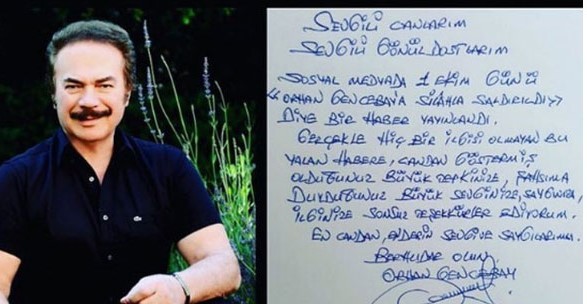 SEVGİLİ CANLARIM
SEVGİLİ GÖNÜL DOSTLARIM
SOSYAL MEDYADA 1 EKİM GÜNÜ
"ORHAN GENCEBAY'A SİLAHLA SALDIRILDI"
DİYE BİR HABER YAYINLANDI.
GERÇEKLE HİÇ BİR İLGİSİ OLMAYAN BU
YALAN HABERE, CANDAN GÖSTERMİŞ
OLDUĞUNUZ BÜYÜK TEPKİNİZE, ŞAHSIMA
DUYDUĞUNUZ BÜYÜK SEVGİNİZE, SAYGINIZA,
İLGİNİZE SONSUZ TEŞEKKÜRLER EDİYORUM.
EN CANDAN, EN DERİN SEVGİ VE SAYGILARIMLA.
BERHUDAR OLUN,
ORHAN GENCEBAY